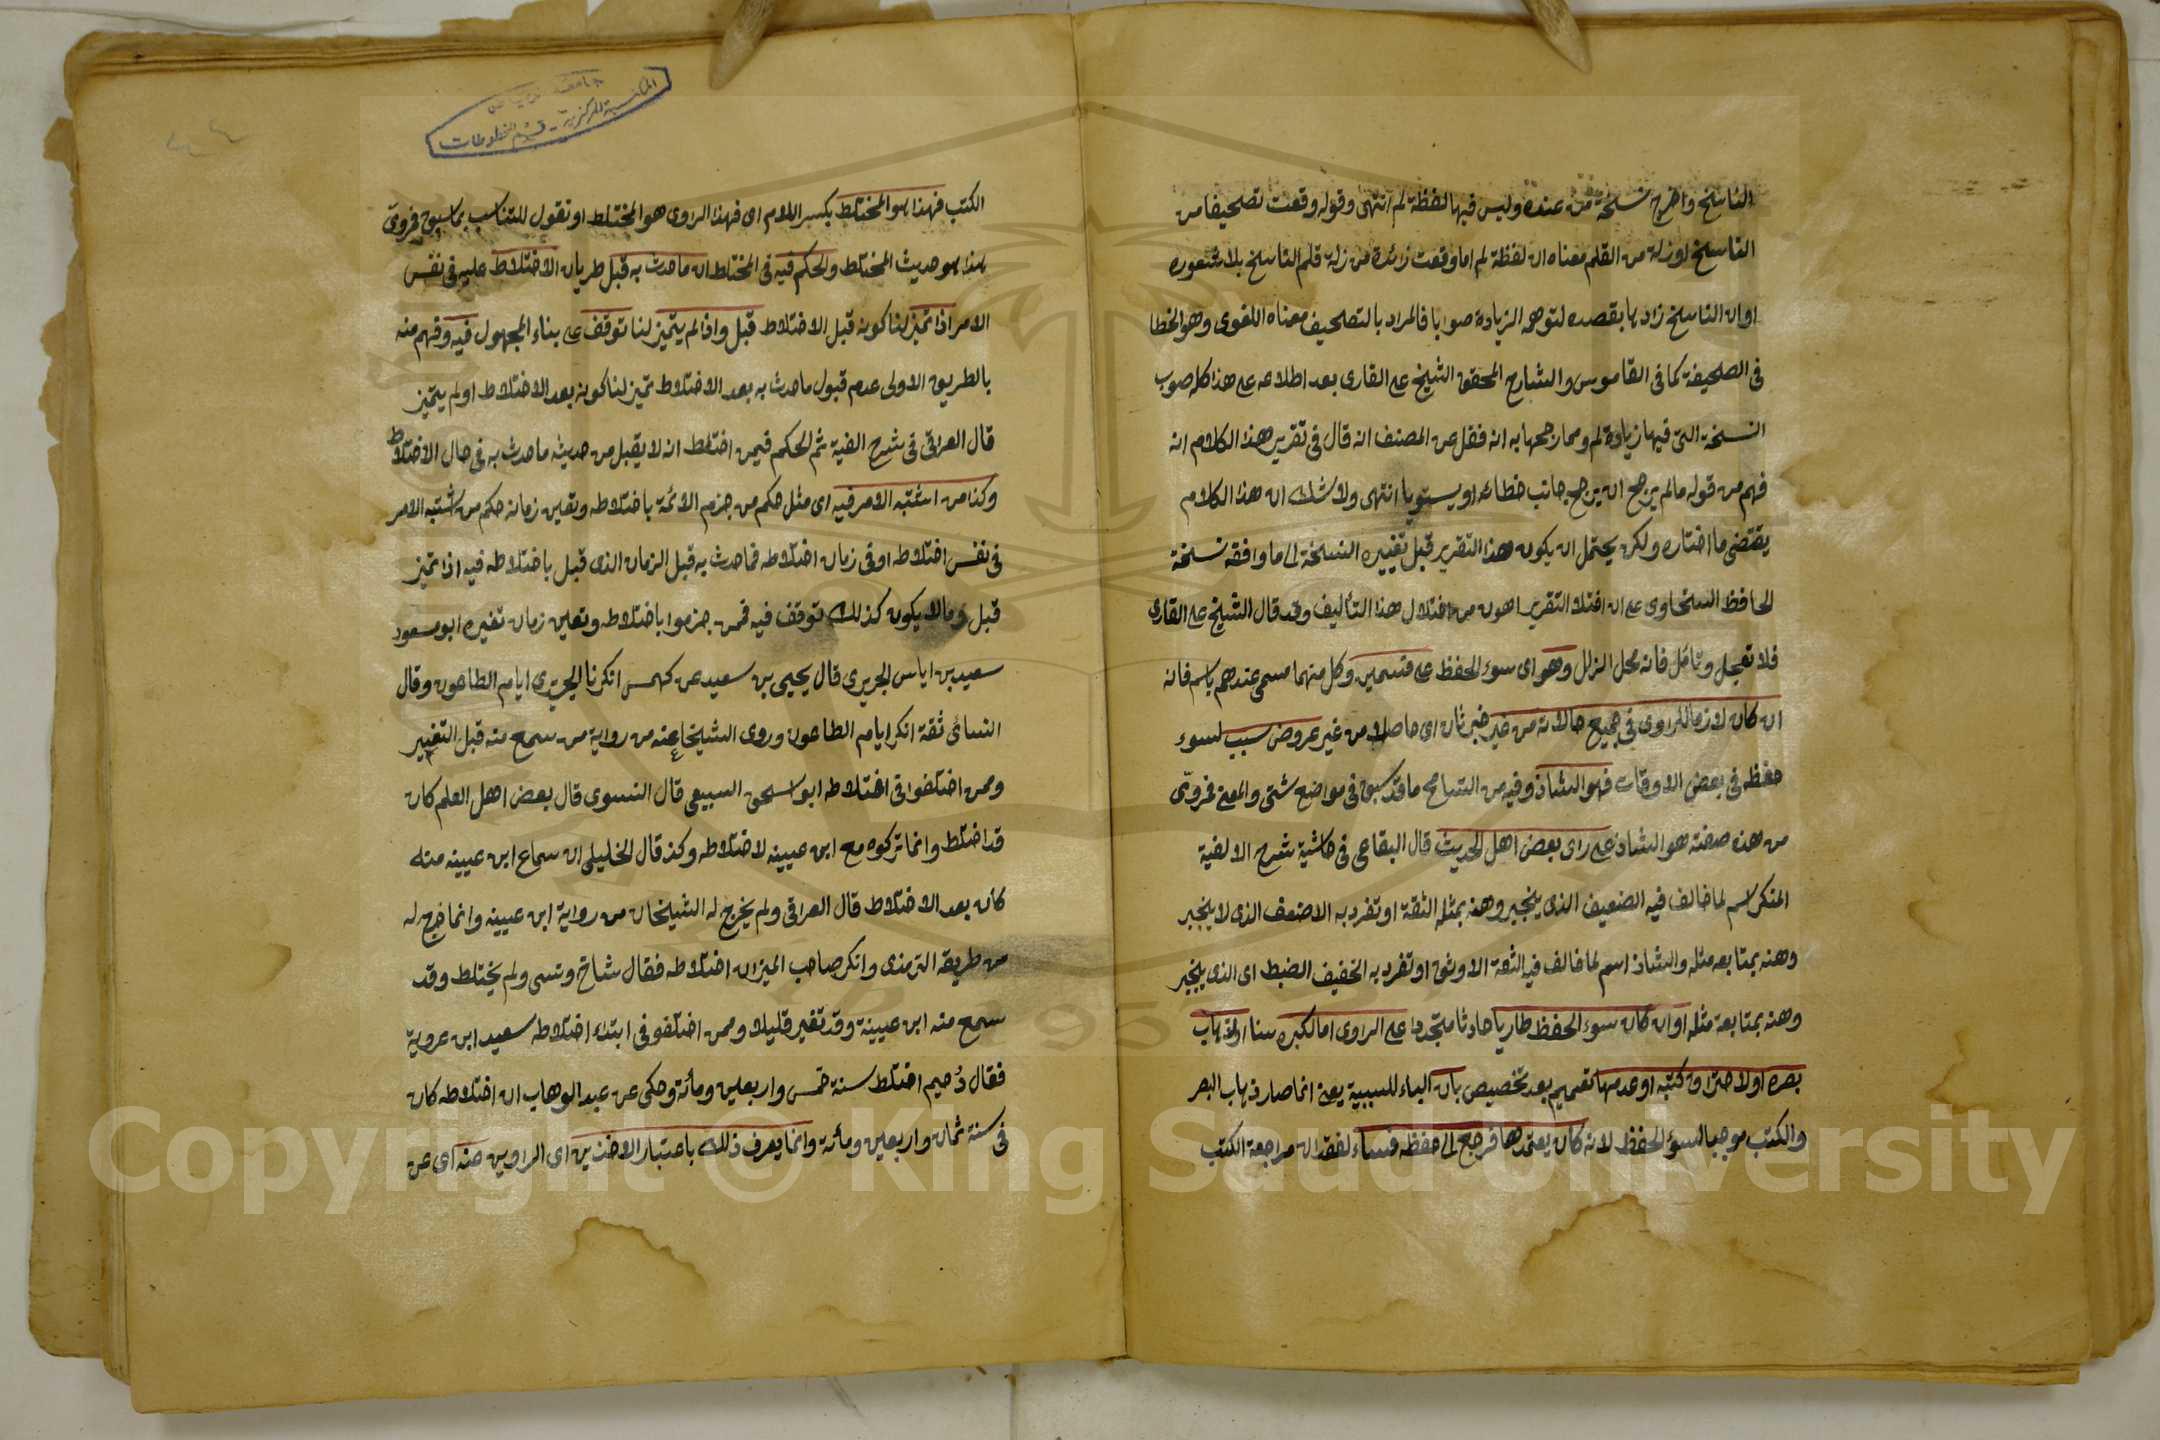 الناسخ واخرج نسخة من عنده وليس فيها لفظة لم انتهى وقوله وقعت تصحيفا من
الناسخ اوزلة من القلم معناه ان لفظة لم اما وقعت زائدة من زلة قلم الناسخ بلا شعوره
او ان الناسخ زادها بقصده لتوهمه الزيادة صوابا فالمراد بالتصحيف معناه اللغوى وهو الخطا
فى الصحيفة كما فى القاموس والشارح المحقق الشيخ على القارى بعد اطلاعه على هذا كله صوب
النسخة التى فيها زيادة لم ومما رجحها به انه نقل عن المصنف انه قال فى تقرير هذا الكلام انه
فهم من قوله مالم يرجح ان يرجح جانب خطائه او يستويا انتهى ولا شك ان هذا الكلام
يقتضى ما اختاره ولكن يحتمل ان يكون هذا التقرير قبل تغييره النسخة الى ما وافقه نسخة
الحافظ السخاوى على ان اختلا التقرير اهون من اختلال هذا التأليف وقد قال الشيخ على القارى
فلا تعجل وتأمل فانه محل الزلل وهو اى سوء الحفظ على قسمين وكل منهما مسمى عندهم باسم فانه
ان كان لازما للراوى فى جميع حالاته من غير خبر ثان اى حاصلا من غير عروض سبب لسوء
حفظه فى بعض الاوقات فهو الشاذ وفيه من التسامح ما قد سبق فى مواضع شتى والمعنى فمروى
من هذه صفته هو الشاذ على راى بعض اهل الحديث قال البقاعى فى حاشية شرح الالفية
المنكر اسم لما خالف فيه الضعيف الذى ينجبر وهنه بمثله الثقة او تفرد به الاضعف الذى لا ينجبر
وهنه بمتابعه مثله والشاذ اسم لما خالف فيه الثقة الاوثق او تفرد به الخفيف الضبط اى الذى ينجبر
وهنه بمتابعة مثله او ان كان سوء الحفظ طاريا حادثا متجددا على الراوى اما لكبره سنا او لذهاب
بصره او لاحتراق كتبه او عدمها تعميم بعد تخصيص بان الباء للسببية يعنى انما صار ذهاب البصر
والكتب موجبا لسوء الحفظ لانه كان يعتمدها فرجع الى حفظه فنساء لفقدان مراجعة الكتب
جامعة الرياض
المكتبة المركزية - قسم المخطوطات
الكتب فهذا هو المختلط بكسر اللام اى فهذا الراوى هو المختلط او تقول للتناسب بما سبق فمروى
هذا هو حديث المختلط والحكم فيه فى المختلط ان ما حدث به قبل طريان الاختلاط عليه فى نفس
الامر اذا تميز لنا كونه قبل الاختلاط قبل واذا لم يتميز لنا توقف على بناء المجهول فيه وفهم منه
بالطريق الاولى عدم قبول ما حدث به بعد الاختلاط تميز لنا كونه بعد الاختلاط او لم يتميز
قال العراقى فى شرح الفية ثم الحكم فيمن اختلط انه لا يقبل من حديثه ما حدث به فى حال الاختلاط
وكذا من اشتبه الامر فيه اى مثل حكم من جزم الائمة باختلاطه وتعين زمانه حكم من اشتبه الامر
فى نفس اختلاطه او فى زمان اختلاطه فما حدث به قبل الزمان الذى قيل باختلاطه فيه اذا تميز
قبل ومالا يكون كذلك توقف فيه فمن جزموا باختلاطه وتعين زمان تغيره ابو مسعود
سعيد بن اياس الجريرى قال يحيى بن سعيد عن كهمس انكرنا الجريرى ايام الطاعون وقال
النسائى ثقة انكر ايام الطاعون وروى الشيخان عنه من رواية من سمع منه قبل التغيير
وممن اختلفوا فى اختلاطه ابو اسحق السبيعى قال النسوى قال بعض اهل العلم كان
قد اختلط وانما تركوه مع ابن عيينه لاختلاطه وكذ قال الخليلى ان سماع ابن عيينه منه
كان بعد الاختلاط قال العراقى ولم يخرج له الشيخان من رواية ابن عيينه وانما خرج له
من طريقه الترمذى وانكر صاحب الميزان اختلاطه فقال شاخ ونسى ولم يختلط وقد
سمع منه ابن عيينة وقد تغير قليلا وممن اختلفو فى ابتداء اختلاطه سعيد ابن عروبة
فقال دُحيم اختلط سنة خمس واربعين ومأئة وحكى عن عبد الوهاب ان اختلاطه كان
فى سنة ثمان واربعين ومأئة وانما يعرف ذلك باعتبار الاخذين اى الراوين عنه اى عن
Copyright © King Saud University